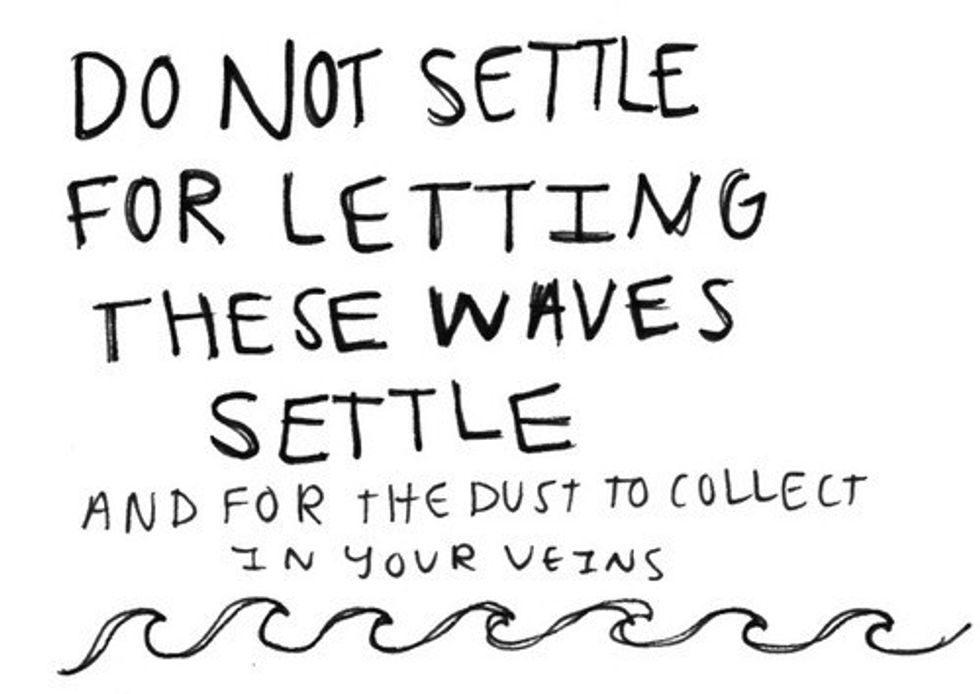 DO NOT SETTLE
FOR LETTING
THESE WAVES
SETTLE
AND FOR THE DUST TO COLLECT
IN YOUR VEINS